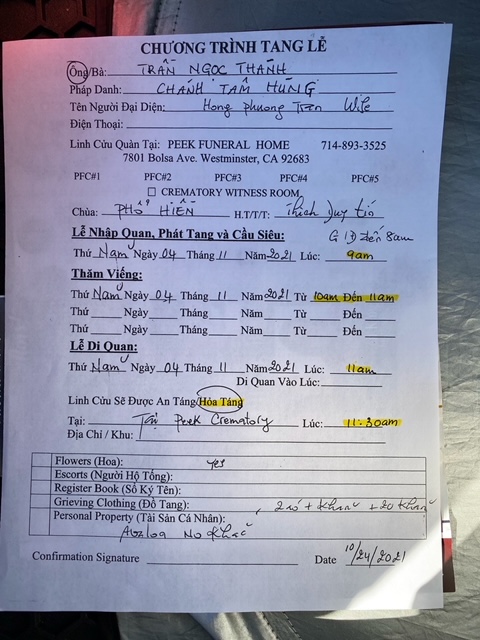 CHƯƠNG TRÌNH TANG LỄ
Ông/Bà: TRẦN NGỌC THÀNH
Pháp Danh: CHÁNH TÂM HÙNG
Tên Người Đại Diện: Hong phuong Tran Wife
Điện Thoại:
Linh Cửu Quàn Tại: PEEK FUNERAL HOME 714-893-3525
7801 Bolsa Ave. Westminster, CA 92683
PFC#1 PFC#2 PFC#3 PFC#4 PFC#5
CREMATORY WITNESS ROOM
Chùa: PHỔ HIỀN H.T/T/T: Thích Duy Tín
G/Đ đến 8am
Lễ Nhập Quan, Phát Tang và Cầu Siêu:
Thứ Năm Ngày 04 Tháng 11 Năm 2021 Lúc: 9am
Thăm Viếng:
Thứ Năm Ngày 04 Tháng 11 Năm 2021 Từ 10am Đến 11am
Thứ Ngày Tháng Năm Từ Đến
Thứ Ngày Tháng Năm Từ Đến
Lễ Di Quan:
Thứ Năm Ngày 04 Tháng 11 Năm 2021 Lúc: 11am
Di Quan Vào Lúc:
Linh Cửu Sẽ Được An Táng/Hỏa Táng
Tại: Tại Peek Crematory Lúc: 11:30am
Địa Chỉ / Khu:
Flowers (Hoa): yes
Escorts (Người Hộ Tống):
Register Book (Sổ Ký Tên):
Grieving Clothing (Đồ Tang): 2 + khăn + 20 khăn
Personal Property (Tài Sản Cá Nhân):
No
Confirmation Signature Date 10/24/2021